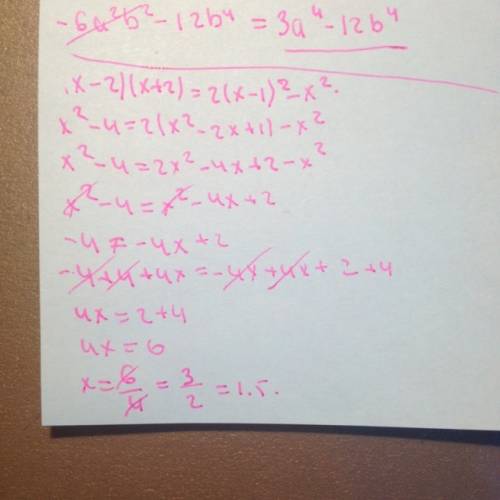 -6a²b² - 12b⁴ = 3a⁴ - 12b⁴
x-2)(x+2) = 2(x-1)² - x².
x² - 4 = 2(x² - 2x + 1) - x²
x² - 4 = 2x² - 4x + 2 - x²
x² - 4 = x² - 4x + 2
-4 = -4x + 2
-4 + 4 + 4x = -4x + 4x + 2 + 4
4x = 2 + 4
4x = 6
x = 6/4 = 3/2 = 1.5.